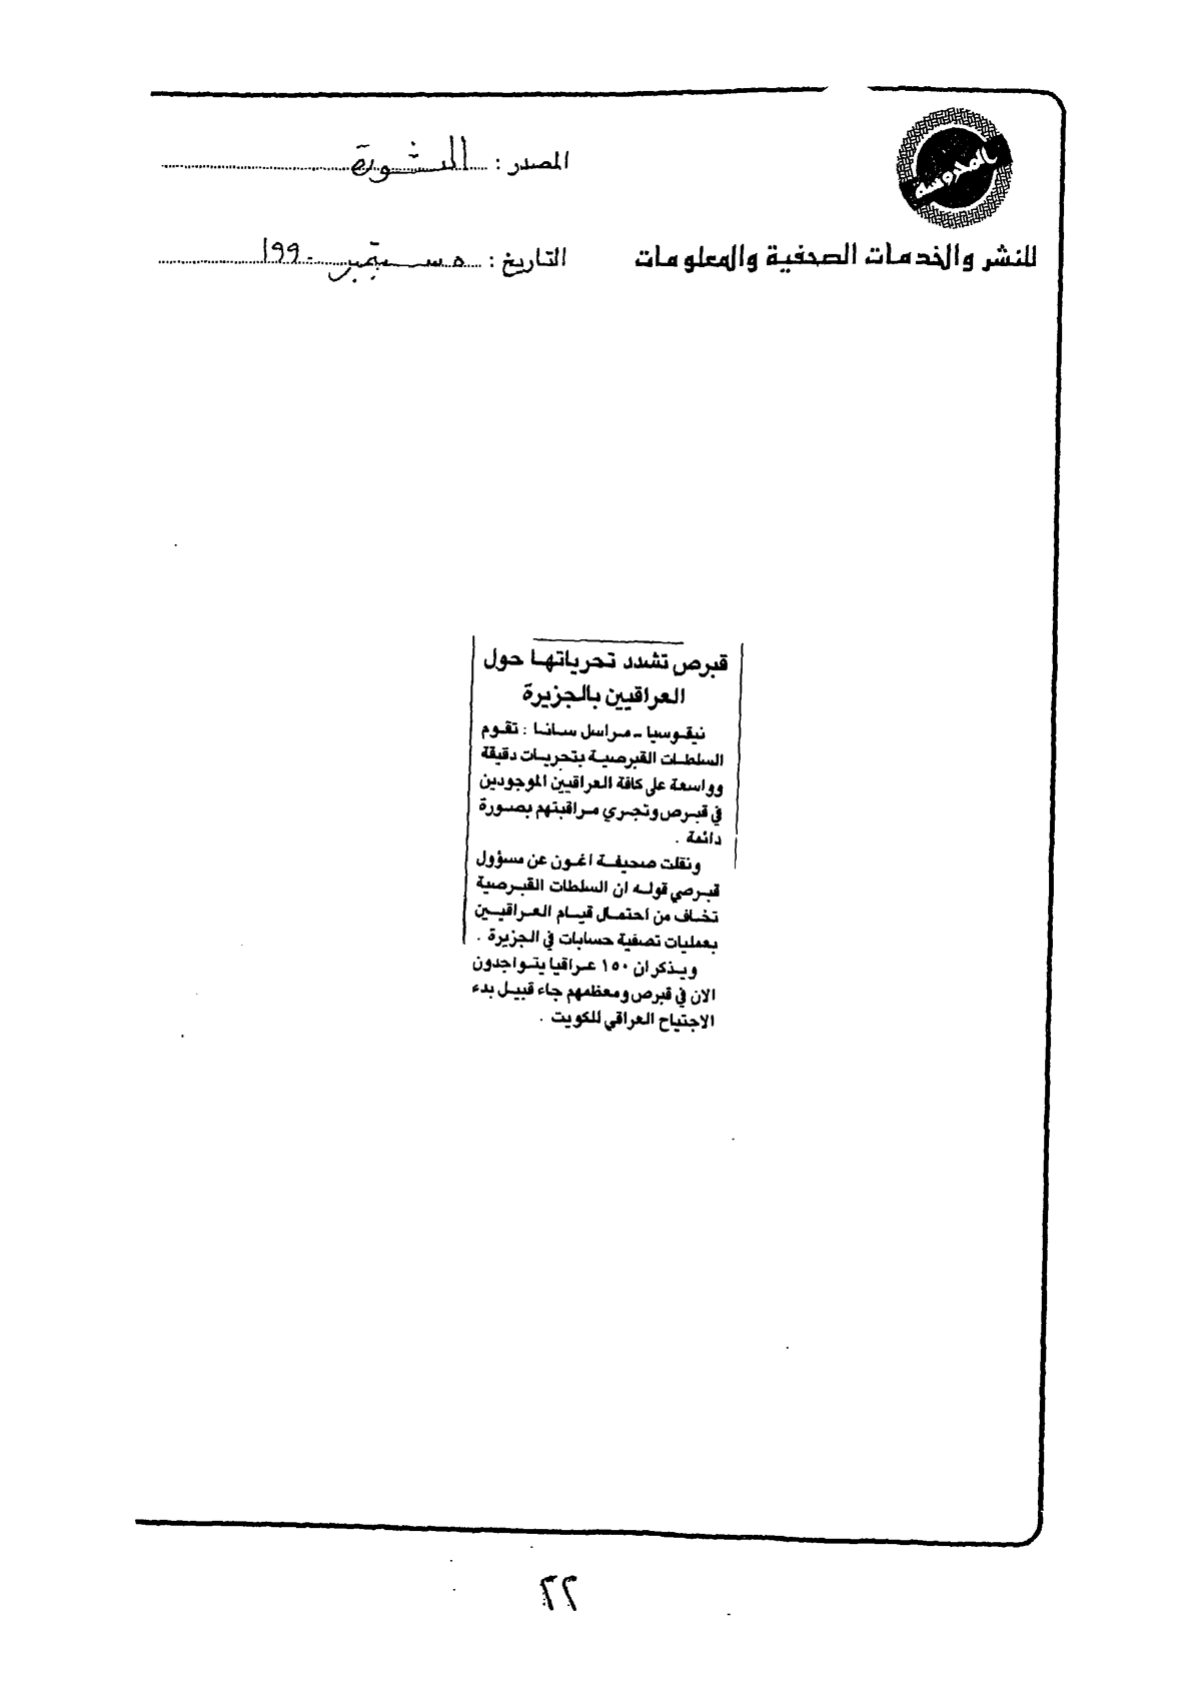 المحروسة
للنشر والخدمات الصحفية والمعلومات
المصدر : الثورة
التاريخ : ٥ سبتمبر ١٩٩٠
قبرص تشدد تحرياتها حول
العراقيين بالجزيرة
نيقوسيا - مراسل سانا : تقوم
السلطات القبرصية بتحريات دقيقة
وواسعة على كافة العراقيين الموجودين
في قبرص وتجري مراقبتهم بصورة
دائمة .
ونقلت صحيفة اغون عن مسؤول
قبرصي قوله ان السلطات القبرصية
تخاف من احتمال قيام العراقيين
بعمليات تصفية حسابات في الجزيرة .
ويذكر ان ١٥٠ عراقيا يتواجدون
الان في قبرص ومعظمهم جاء قبيل بدء
الاجتياح العراقي للكويت .
٢٢